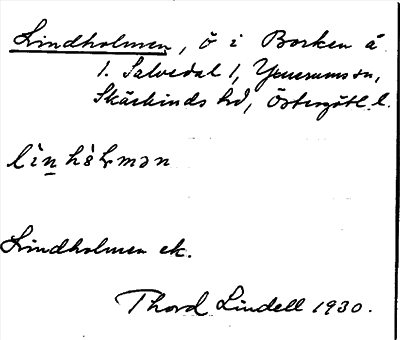 Lindholmen, ö i Borken å
1. Salvedal 1, Yxnerums sn,
Skärkinds hd, Östergötl. l.
lìn hòḷmən
Lindholmen ek.
Thord Lindell 1930.